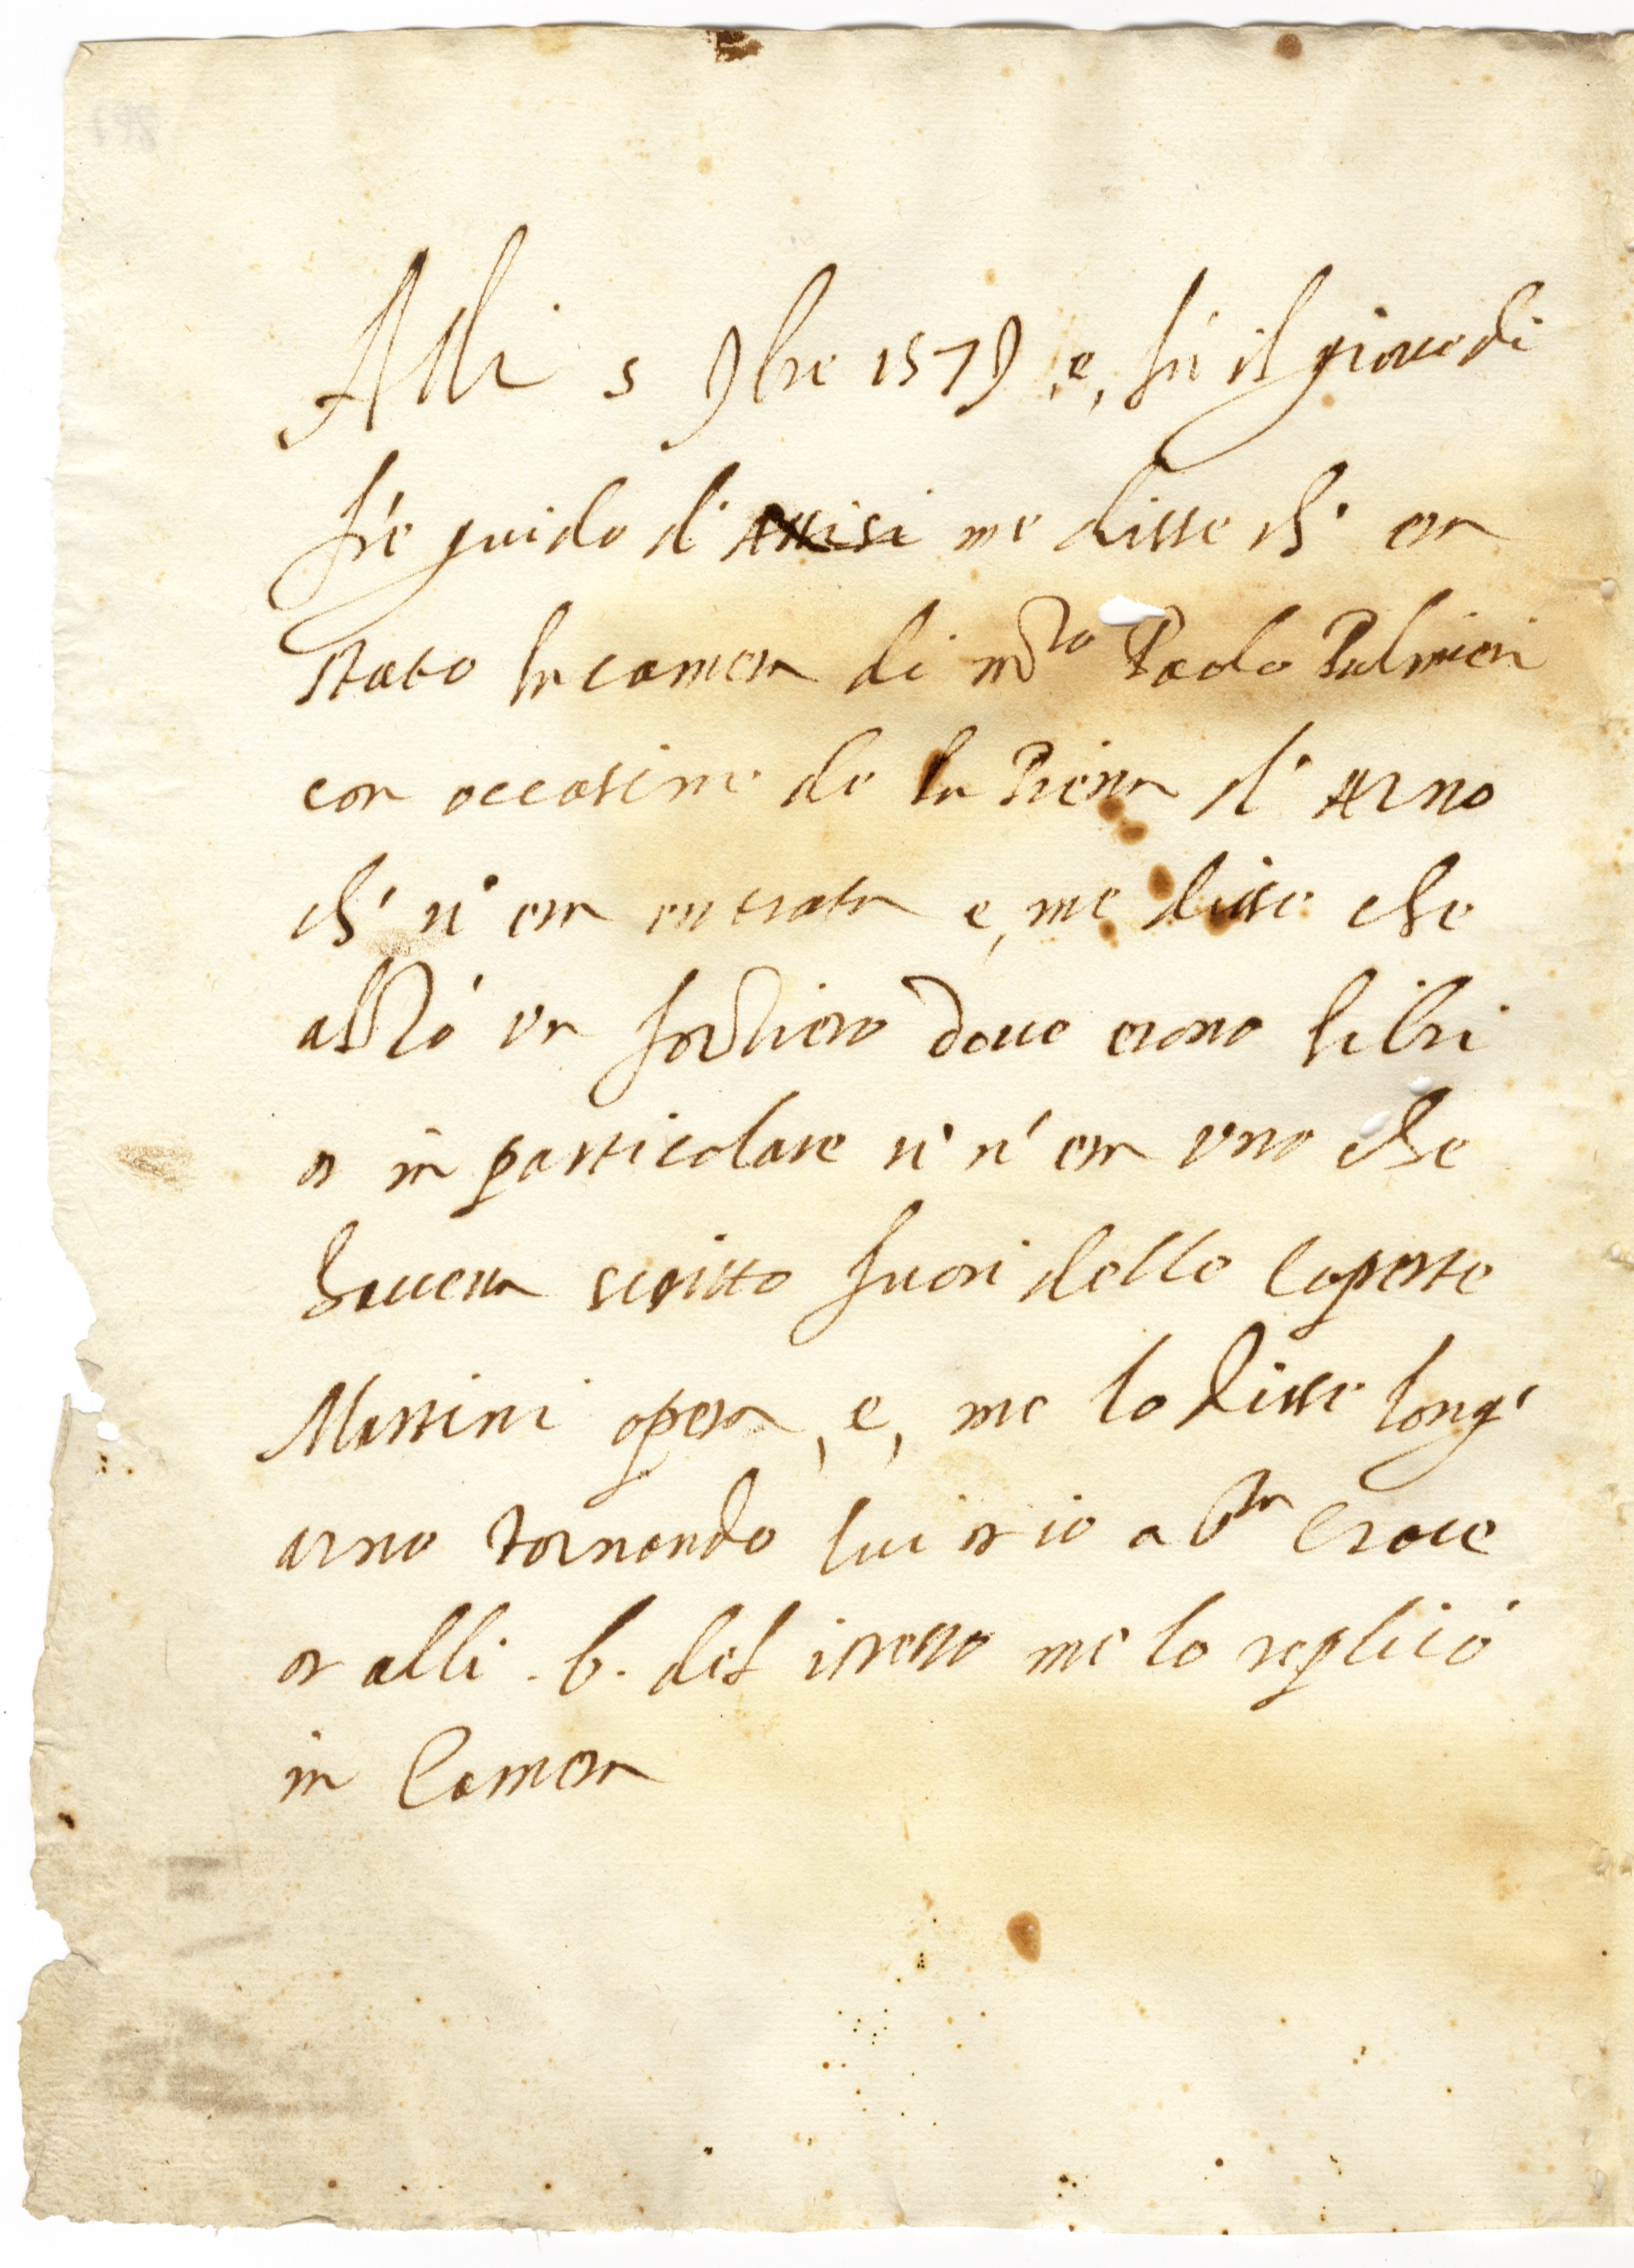 Alli 5 9bre 1579, e, fu il giovedi
fre guido d' Assisi me disse ch' era
stato in camera di mro Paolo Palmieri
con occasione de la Piena d' Arno
ch' v' era entrata e, me disse che
alzò un forziero dove erono libri
et in particolare v' n' era uno che
haveva scritto fuori delle coperte
Martini opera, e, me lo disse long'
arno tornando lui et io a Sta Croce
et alli .6. del istesso me lo replicó
in Camera